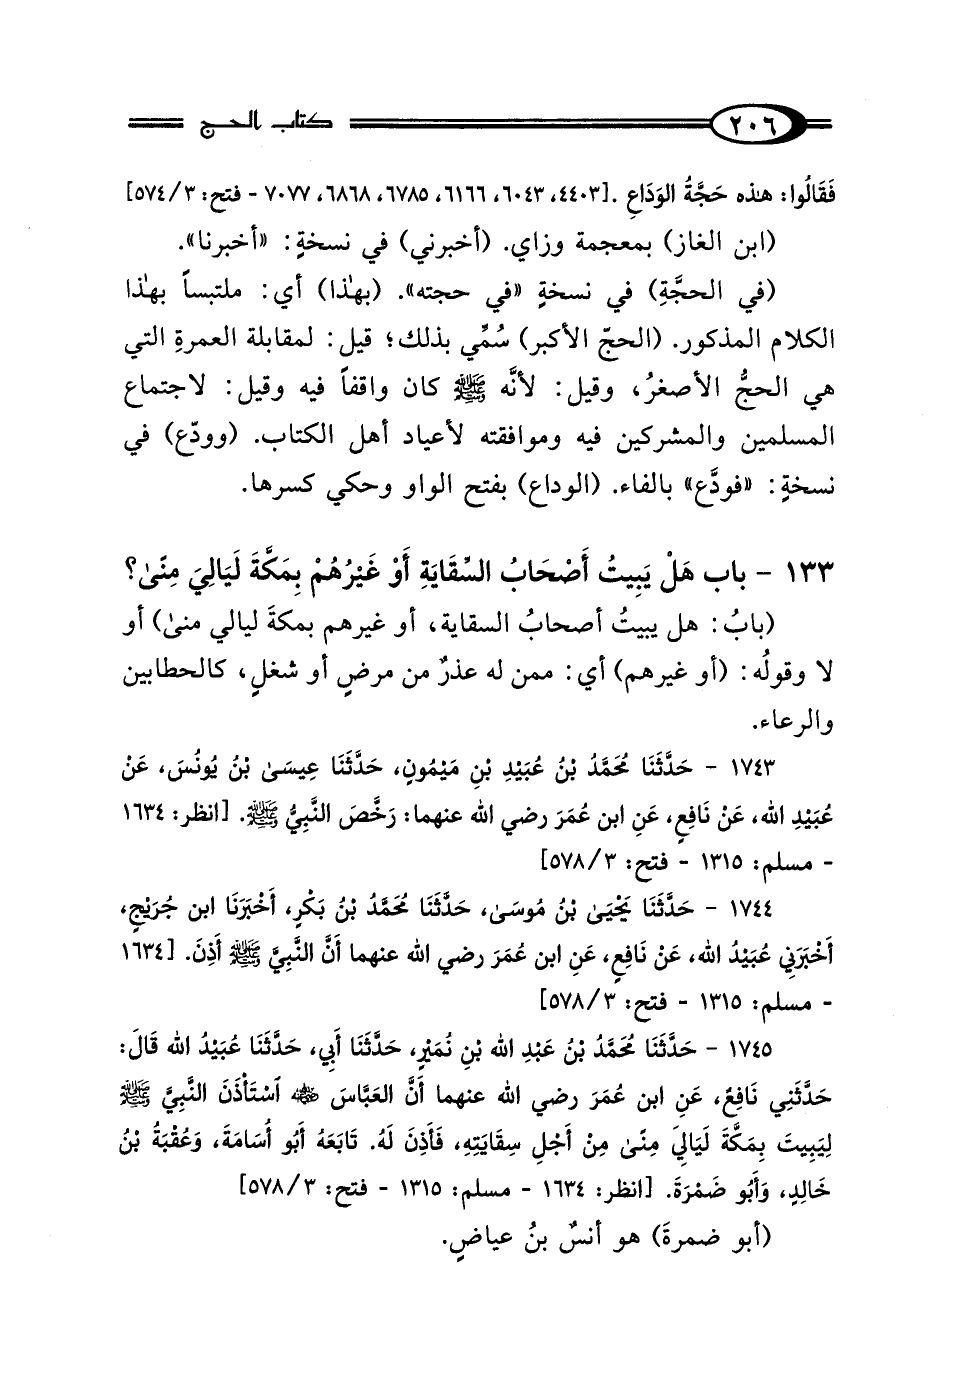 ٢٠٦ كتاب الحج
فَقَالُوا: هذه حَجَّةُ الوَدَاعِ .[٤٤٠٣، ٦٠٤٣، ٦١٦٦، ٦٧٨٥، ٦٨٦٨، ٧٠٧٧ - فتح: ٣/ ٥٧٤]
(ابن الغاز) بمعجمة وزاي. (أخبرني) في نسخةٍ: «أخبرنا».
(في الحجَّةِ) في نسخةٍ «في حجته». (بهٰذا) أي: ملتبساً بهٰذا
الكلام المذكور. (الحجّ الأكبر) سُمِّي بذلك؛ قيل: لمقابلة العمرةِ التي
هي الحجُّ الأصغرُ، وقيل: لأنَّه ﷺ كان واقفاً فيه وقيل: لاجتماع
المسلمين والمشركين فيه وموافقته لأعياد أهل الكتاب. (وودّع) في
نسخةٍ: «فودَّع» بالفاء. (الوداع) بفتح الواو وحكي كسرها.
١٣٣ - باب هَلْ يَبِيتُ أَصْحَابُ السِّقَايَةِ أَوْ غَيْرُهُمْ بِمَكَّةَ لَيَالِيَ مِنًىٰ؟
(بابُ: هل يبيتُ أصحابُ السقاية، أو غيرهم بمكةَ ليالي منىٰ) أو
لا وقولُه: (أو غيرهم) أي: ممن له عذرٌ من مرضٍ أو شغلٍ، كالحطابين
والرعاء.
١٧٤٣ - حَدَّثَنَا مُحَمَّدُ بْنُ عُبَيْدِ بْنِ مَيْمُونٍ، حَدَّثَنَا عِيسَىٰ بْنُ يُونُسَ، عَنْ
عُبَيْدِ الله، عَنْ نَافِعٍ، عَنِ ابن عُمَرَ رضي الله عنهما: رَخَّصَ النَّبِيُّ ﷺ. [انظر: ١٦٣٤
- مسلم: ١٣١٥ - فتح: ٣/ ٥٧٨]
١٧٤٤ - حَدَّثَنَا يَحْيَىٰ بْنُ مُوسَىٰ، حَدَّثَنَا مُحَمَّدُ بْنُ بَكْرٍ، أَخْبَرَنَا ابن جُرَيْجٍ،
أَخْبَرَنِي عُبَيْدُ الله، عَنْ نَافِعٍ، عَنِ ابن عُمَرَ رضي الله عنهما أَنَّ النَّبِيَّ ﷺ أَذِنَ. [١٦٣٤
- مسلم: ١٣١٥ - فتح: ٣/ ٥٧٨]
١٧٤٥ - حَدَّثَنَا مُحَمَّدُ بْنُ عَبْدِ الله بْنِ نُمَيْرٍ، حَدَّثَنَا أَبِي، حَدَّثَنَا عُبَيْدُ الله قَالَ:
حَدَّثَنِي نَافِعٌ، عَنِ ابن عُمَرَ رضي الله عنهما أَنَّ العَبَّاسَ ﷺ ٱسْتَأْذَنَ النَّبِيَّ ﷺ
لِيَبِيتَ بِمَكَّةَ لَيَالِيَ مِنًىٰ مِنْ أَجْلِ سِقَايَتِهِ، فَأَذِنَ لَهُ. تَابَعَهُ أَبُو أُسَامَةَ، وَعُقْبَةُ بْنُ
خَالِدٍ، وَأَبُو ضَمْرَةَ. [انظر: ١٦٣٤ - مسلم: ١٣١٥ - فتح: ٣/ ٥٧٨]
(أبو ضمرةَ) هو أنسٌ بنُ عياضٍ.